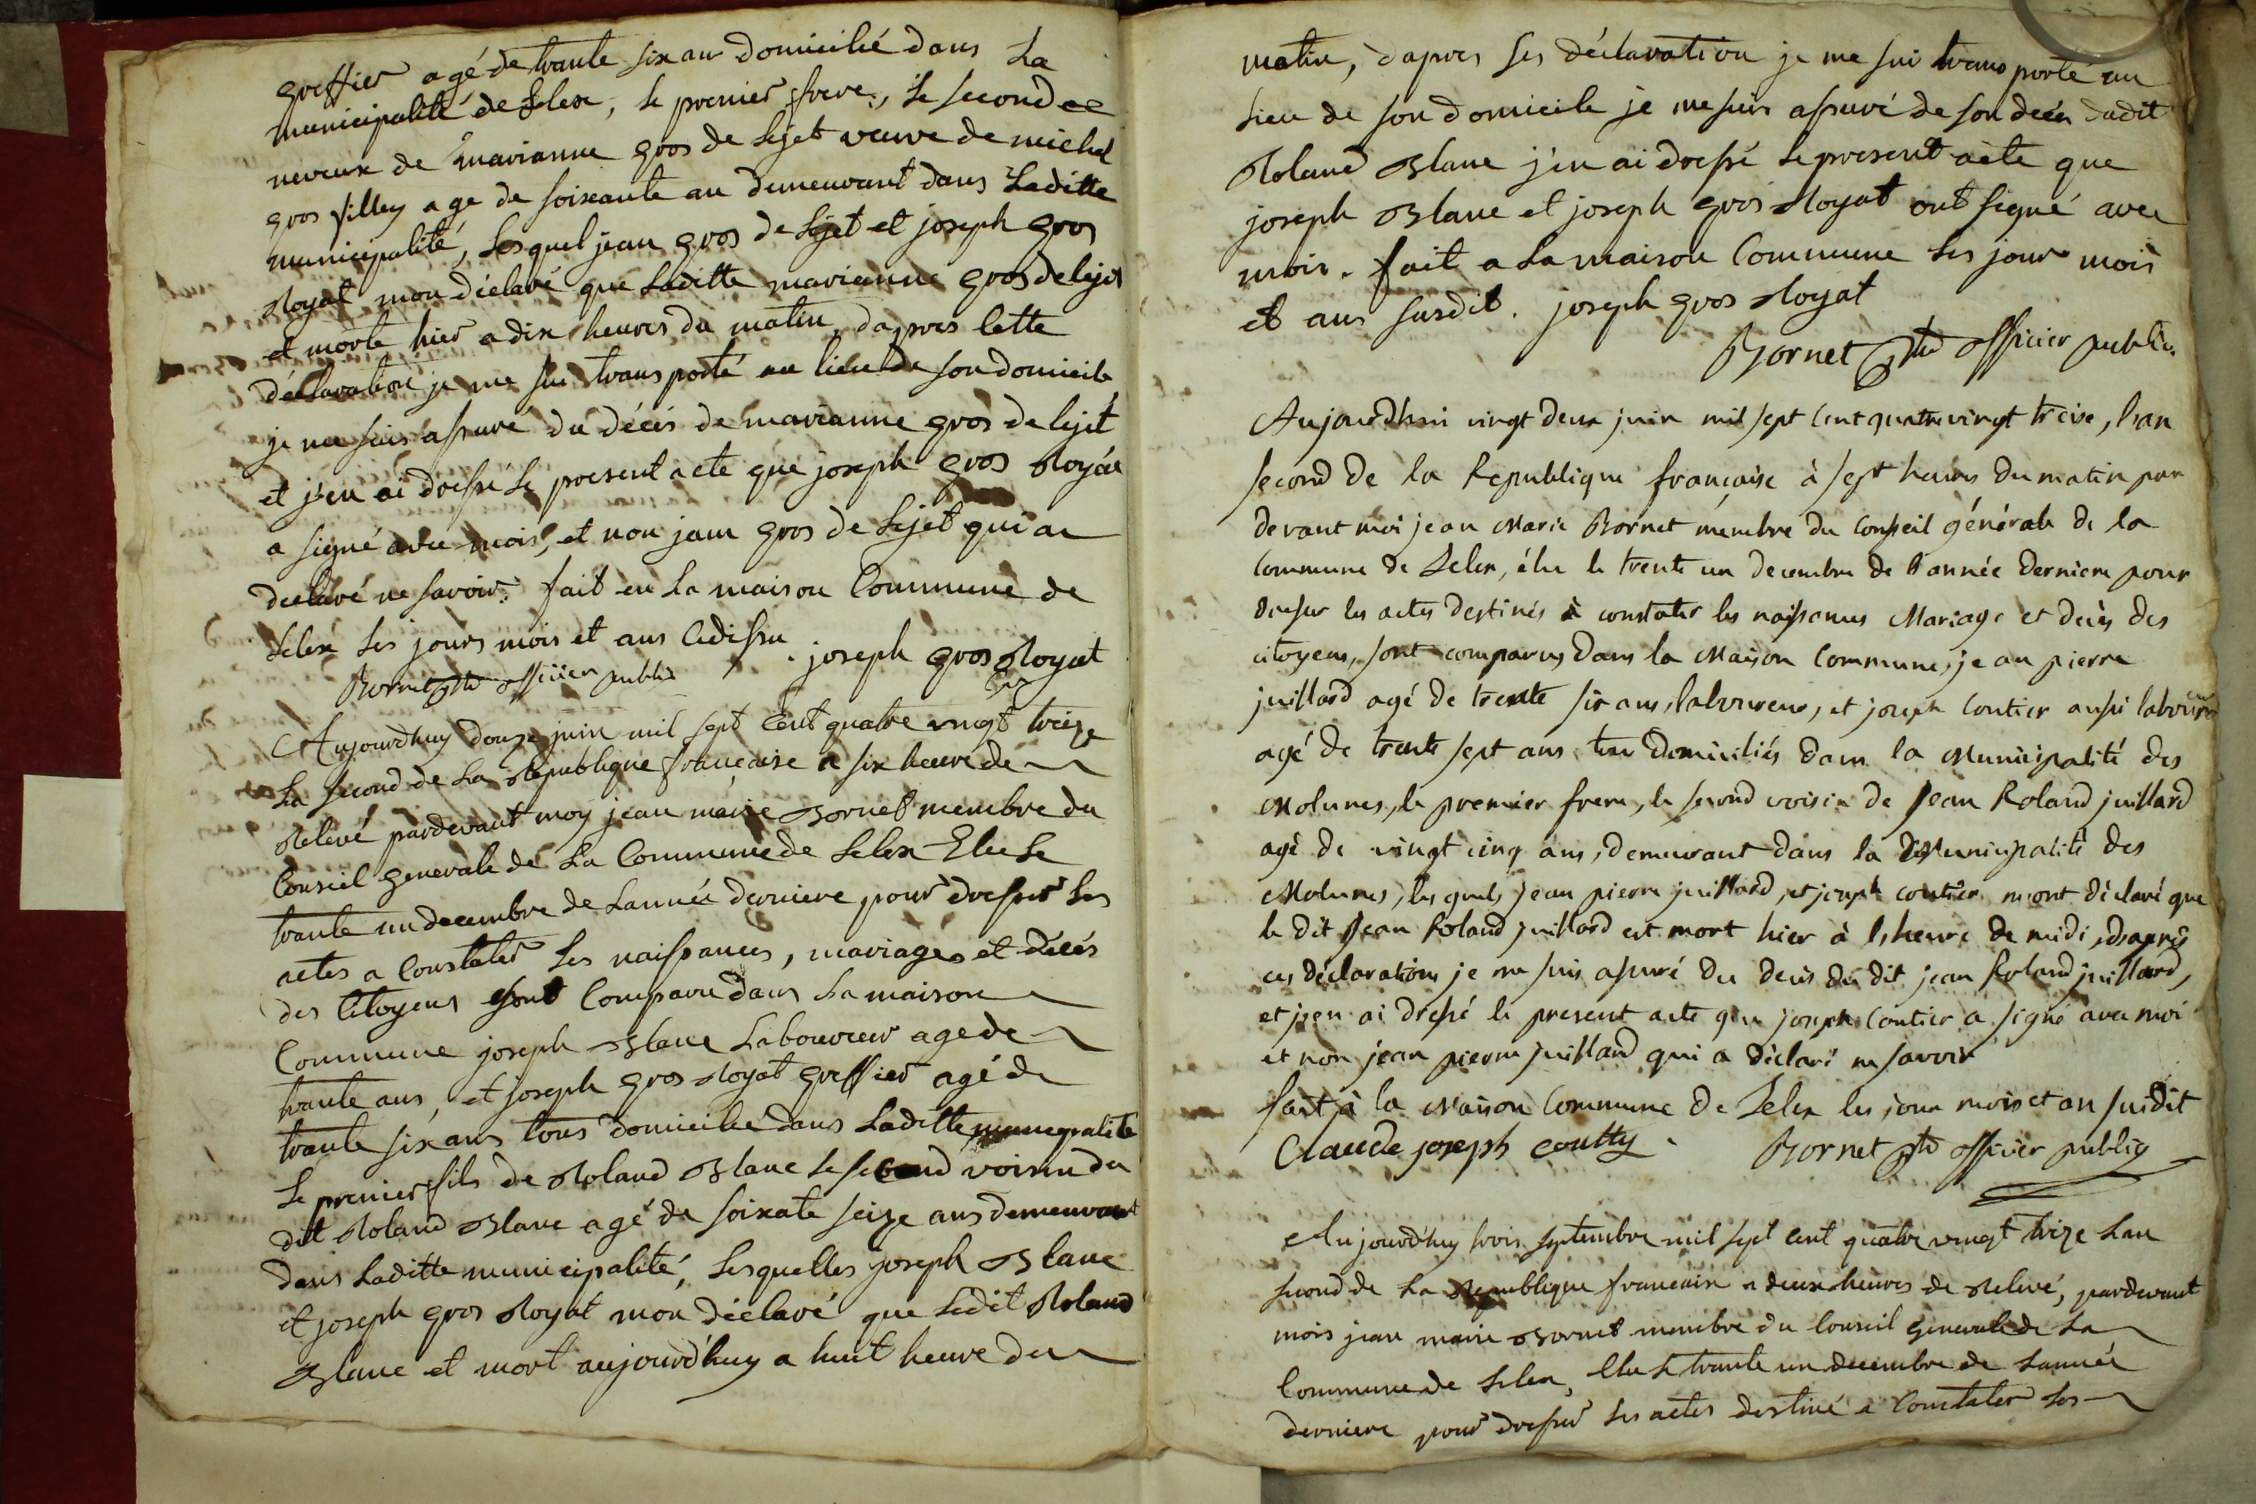 greffier agé de trante six an domicilié dans La
municipalité de Lelex, le premier frere, le second
neveux de marianne gros de Lejet veuve de michel
gros filley age de soixante an demeurant dans Laditte
municipalité, Lesquel jean gros de Lejet et joseph gros
Royat mon déclaré que Laditte marianne gros de lejet
et morte hier a dix heures du matin, dapres lette
déclaration je me sui transporté au lieu de son domicile
je me suis assuré du décés de marianne gros de lejet
et j'en ai dressé le present acte que joseph gros Royat
a signé avec mois, et non jean gros de Lejet qui a
declaré ne savoir. fait en La maison Commune de
Lelex Les jours mois et ans Cidissu. joseph gros Royat
Bornet officier public
Aujourdhuy douze juin mil sept Cent quatre vingt treize
La second de La Republique francaise a six heure de
Relevé pardevant moy jean marie Bornet membre du
Conseil generale de La Commune de Lelex Elu Le
trante un decembre de Lannée derniere pour dresser Les
actes a Constater Les naissances, mariages et décés
des Citoyens sont Comparu dans La maison
Commune joseph Blanc Laboureur age de
trante ans, et joseph gros Royat greffier agé de
trante six ans tous domicilié dans Laditte municipalité
Le premier fils de Roland Blanc Le second voisin du
dit Roland Blanc agé de soixate seize ans demeurant
dans Laditte municipalité, Lesquelles joseph Blanc
et joseph gros Royat mon déclaré que Ledit Roland
Blanc et mort aujourd'huy a huit heure du
matin, dapres Ses déclaration je me sui transporté au
Lieu de son domicile je me suis assuré de son décés dudit
Roland Blanc j'en ai dressé Le present acte que
joseph Blanc et joseph gros Royat ont signé avec
mois. fait a La maison Commune Les jour mois
et ans susdit. joseph gros Royat
Bornet officier public
Aujourdhui vingt deux juin mil sept cent quatre vingt treise, l'an
second de la Republique française à sept heures du matin par
devant moi jean Marie Bornet membre du Conseil générale de la
Commune de Lelex, élu le trente un decembre de l'année derniere pour
dresser les actes destinés à constater les naissances Mariage et decès des
citoyens, sont comparus dans la Maison Commune, jean pierre
juillard agé de trente six ans, laboureur, et joseph Coutier aussi laboureur
agé de trente sept ans tou domiciliés dans la Municipalité des
Molunes, le premier frere, le second voisin de Jean Roland juillard
agé de vingt cinq ans, demeurant dans la Municipalité des
Molunes, les quels jean pierre juillard, et joseph coutier m'ont déclaré que
le dit Jean Roland juillard est mort hier à l'heure de midi, d'après
ces déclarations je me suis assuré du decès du dit jean Roland juillard,
et j'en ai dressé le present acte que joseph Coutier a signé avec moi
et non jean pierre juillard qui a déclaré ne savoir
fait à la Maison Commune de Lelex les jour mois et an susdit
Claude joseph coutty. Bornet officier public
Aujourd'huy trois septembre mil sept cent quatre vingt treize Lan
second de La Republique francaise a deux heures de Relevé, pardevant
mois jean marie Bornet membre du Conseil generale de La
Commune de Lelex, Elu Le trante un decembre de Lannée
derniere pour dresser Les actes destiné a Constater Les